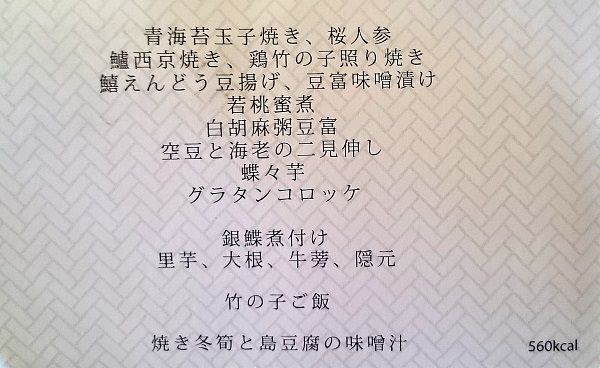 青海苔玉子焼き、桜人参
鱸西京焼き、鶏竹の子照り焼き
鱚えんどう豆揚げ、豆富味噌漬け
若桃蜜煮
白胡麻粥豆富
空豆と海老の二見伸し
蝶々芋
グラタンコロッケ
銀鰈煮付け
里芋、大根、牛蒡、隠元
竹の子ご飯
焼き冬筍と島豆腐の味噌汁
560kcal